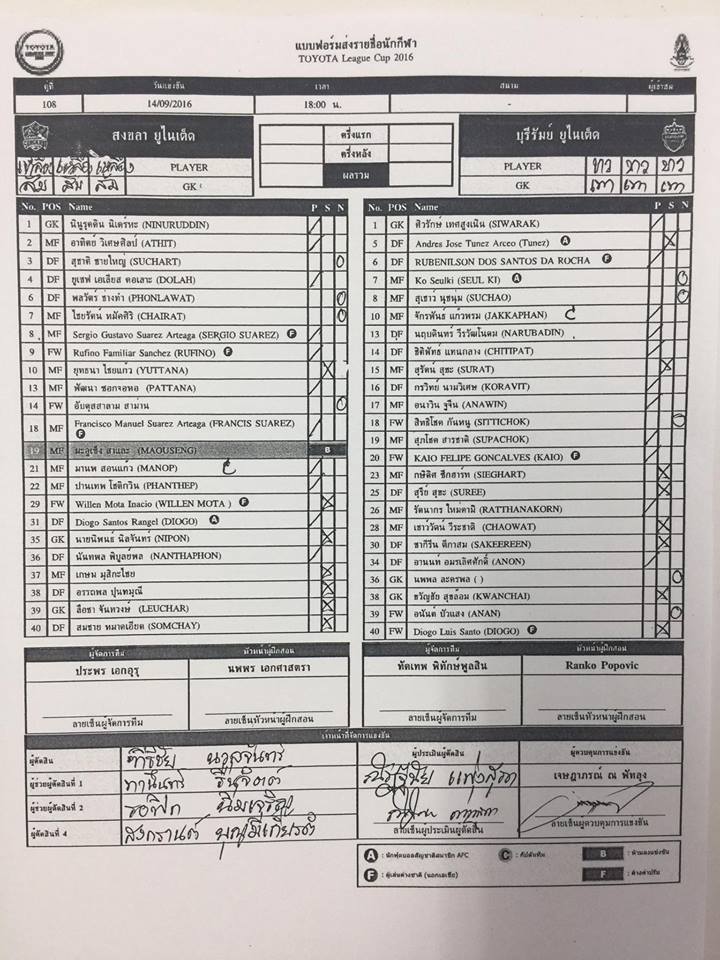 แบบฟอร์มส่งรายชื่อนักกีฬา
TOYOTA League Cup 2016
คู่ที่ วันแข่งขัน เวลา สนาม ผู้เข้าชม
108 14/09/2016 18:00 น. -
สงขลา ยูไนเต็ด ครึ่งแรก บุรีรัมย์ ยูไนเต็ด
ครึ่งหลัง
ผลรวม
เหลือง เหลือง เหลือง PLAYER
ส้ม ส้ม ส้ม GK
PLAYER ขาว ขาว ขาว
GK เทา เทา เทา
No. POS Name P S N
1 GK นินูรุดดิน นิเดร์หะ (NINURUDDIN) /
2 MF อาทิตย์ วิเศษศิลป์ (ATHIT) /
3 DF สุชาติ ชายใหญ่ (SUCHART) O
4 DF ยูเซฟ เอเลียส ดอเลาะ (DOLAH) /
6 DF พลวัตร ช่างทำ (PHONLAWAT) O
7 MF ไชยรัตน์ หมัดศิริ (CHAIRAT) O
8 MF Sergio Gustavo Suarez Arteaga (SERGIO SUAREZ) F /
9 FW Rufino Familiar Sanchez (RUFINO) F /
10 MF ยุทธนา ไชยแก้ว (YUTTANA) X
13 MF พัฒนา ซอกจอหอ (PATTANA) /
14 FW อับดุสสาลาม สาม่าน O
18 MF Francisco Manuel Suarez Arteaga (FRANCIS SUAREZ) F /
19 MF มะอูเซ็ง สาและ (MAOUSENG) B
21 MF มานพ สอนแก้ว (MANOP) C /
22 MF ปานเทพ โชติกวิน (PHANTHEP) /
29 FW Willen Mota Inacio (WILLEN MOTA ) F X
31 DF Diogo Santos Rangel (DIOGO) A /
35 GK นายนิพนธ์ นิลจันทร์ (NIPON) X
36 DF นันทพล พิบูลย์พล (NANTHAPHON) /
37 MF เกษม มุสิกะไชย X
38 DF อรรถพล ปุนทมุณี X
39 GK ลือชา จันทวงษ์ (LEUCHAR) X
40 DF สมชาย หมาดเอียด (SOMCHAY) X
No. POS Name P S N
1 GK ศิวรักษ์ เทศสูงเนิน (SIWARAK) /
5 DF Andres Jose Tunez Arceo (Tunez) A X
6 DF RUBENILSON DOS SANTOS DA ROCHA F /
7 MF Ko Seulki (SEUL KI) A O
8 MF สุเชาว์ นุชนุ่ม (SUCHAO) O
10 MF จักรพันธ์ แก้วพรม (JAKKAPHAN) C /
13 DF นฤบดินทร์ วีรวัฒโนดม (NARUBADIN) /
14 DF ชิติพัทธ์ แทนกลาง (CHITIPAT) /
15 MF สุรัตน์ สุขะ (SURAT) X
16 DF กรวิทย์ นามวิเศษ (KORAVIT) /
17 MF อนาวิน จูจีน (ANAWIN) /
18 FW สิทธิโชค กันหนู (SITTICHOK) O
19 MF สุภโชค สารชาติ (SUPACHOK) /
20 FW KAIO FELIPE GONCALVES (KAIO) F /
23 MF กษิดิศ ซีกฮาร์ท (SIEGHART) X
25 DF สุรีย์ สุขะ (SUREE) X
26 MF รัตนากร ใหม่คามิ (RATTHANAKORN) /
28 MF เชาว์วัฒน์ วีระชาติ (CHAOWAT) X
30 DF ซากีรีน ตีกาสม (SAKEEREEN) X
34 DF อานนท์ อมรเลิศศักดิ์ (ANON) /
36 GK นพพล ละครพล ( ) O
38 GK ขวัญชัย สุขล้อม (KWANCHAI) X
39 FW อนันต์ บัวแสง (ANAN) O
40 FW Diogo Luis Santo (DIOGO) F X
ผู้จัดการทีม หัวหน้าผู้ฝึกสอน ผู้จัดการทีม หัวหน้าผู้ฝึกสอน
ประพร เอกอุรุ นพพร เอกศาสตรา ทัดเทพ พิทักษ์พูลสิน Ranko Popovic
ลายเซ็นผู้จัดการทีม ลายเซ็นหัวหน้าผู้ฝึกสอน ลายเซ็นผู้จัดการทีม ลายเซ็นหัวหน้าผู้ฝึกสอน
เจ้าหน้าที่จัดการแข่งขัน
ผู้ตัดสิน ทิธิชัย นวลจันทร์
ผู้ช่วยผู้ตัดสินที่ 1
ผู้ช่วยผู้ตัดสินที่ 2
ผู้ตัดสินที่ 4 สงกรานต์ บุญมีเกียรติ
ผู้ประเมินผู้ตัดสิน ผู้ควบคุมการแข่งขัน
เจษฎาภรณ์ ณ พัทลุง
ลายเซ็นผู้ประเมินผู้ตัดสิน ลายเซ็นผู้ควบคุมการแข่งขัน
A : นักฟุตบอลสัญชาติสมาชิก AFC C : กัปตันทีม B : ห้ามลงแข่งขัน
F : ผู้เล่นต่างชาติ (นอกเอเชีย) F : ค้างค่าปรับ